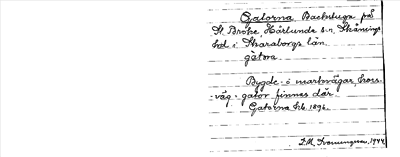 Gatorna, Backstuga på
St. Bröke, Härlunda s:n, Skånings
hd i Skaraborgs län.
gatora
Bygde- o marknvägar, kors-
väg - gator finnes där.
Gatorna Frb. 1896.
1944